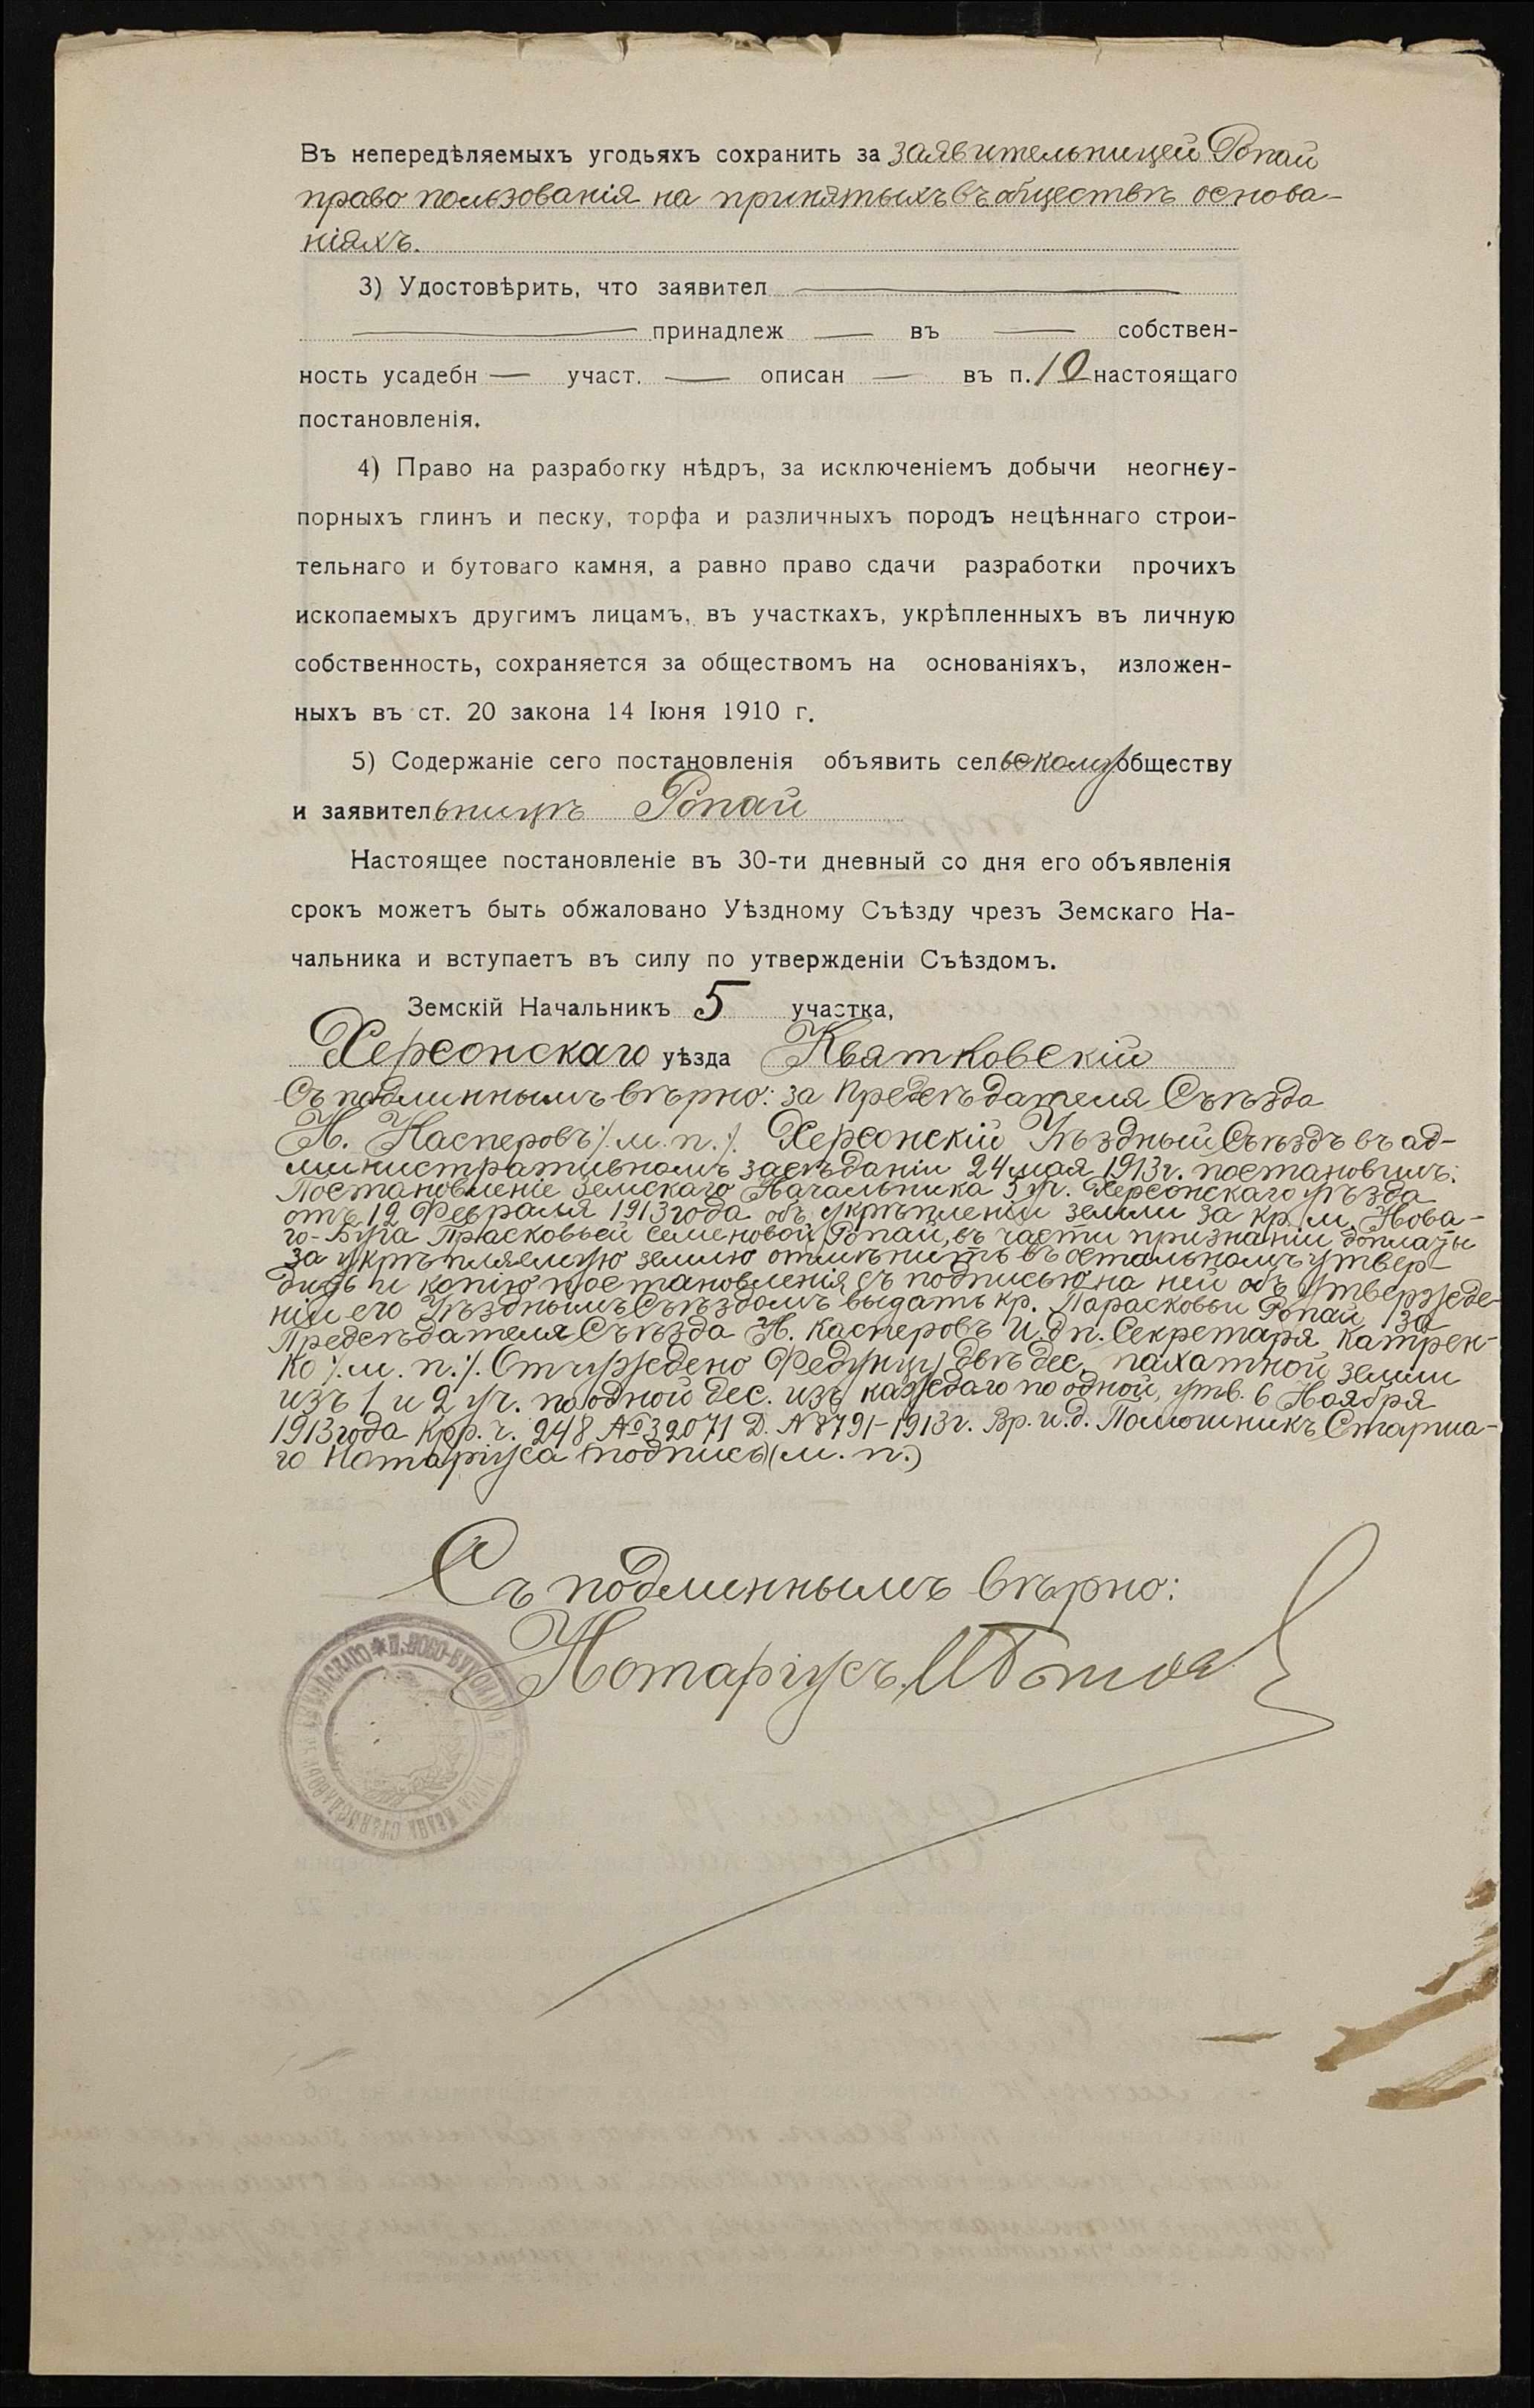 Въ непередѣляемыхъ угодьяхъ сохранить за заявительницей Ропай
право пользованія на принятыхъ въ обществѣ основа-
ніяхъ.
3) Удостовѣрить, что заявител
принадлеж въ собствен-
ность усадебн участ. описан въ п. 10 настоящаго
постановленія.
4) Право на разработку нѣдръ, за исключеніемъ добычи неогнеу-
порныхъ глинъ и песку, торфа и различныхъ породъ нецѣннаго строи-
тельнаго и бутоваго камня, а равно право сдачи разработки прочихъ
ископаемыхъ другимъ лицамъ, въ участкахъ, укрѣпленныхъ въ личную
собственность, сохраняется за обществомъ на основаніяхъ, изложен-
ныхъ въ ст. 20 закона 14 Іюня 1910 г.
5) Содержаніе сего постановленія объявить сельскому обществу
и заявительницѣ Ропай
Настоящее постановленіе въ 30-ти дневный со дня его объявленія
срокъ можетъ быть обжаловано Уѣздному Съѣзду чрезъ Земскаго На-
чальника и вступаетъ въ силу по утвержденіи Съѣздомъ.
Земскій Начальникъ 5 участка,
Херсонскаго уѣзда Квятковскій
Съ подлиннымъ вѣрно: за Предсѣдателя Съѣзда
Н. Касперовъ /.м. п./. Херсонскій Уѣздный Съѣздъ въ ад-
министративномъ засѣданіи 24 мая 1913 г. постановилъ:
Постановленіе Земскаго Начальника 5 уч. Херсонскаго уѣзда
отъ 12 Февраля 1913 года объ укрѣпленіи земли за кр. м. Нова-
го-Буга Прасковьей Семеновой Ропай, въ части признаніи доплаты
за укрѣпляемую землю отмѣнить въ остальномъ утвер-
дить и копію постановленія съ подписью на ней объ утвержде-
ніи его Уѣзднымъ Съѣздомъ выдать кр. Парасковьи Ропай За
Предсѣдателя Съѣзда Н. Касперовъ И. д. п. Секретаря Катрен-
ко /.м. п./. Отчуждено Федунцу двѣ дес. пахатной земли
изъ 1 и 2 уч. по одной дес. изъ каждаго по одной, утв. 6 Ноября
1913 года Кр. ч. 248 № 32071 Д. № 8791-1913 г. Вр. и. д. Помощникъ Старша-
го Нотаріуса (подпись) (м. п.)
Съ подлиннымъ вѣрно:
Нотаріусъ